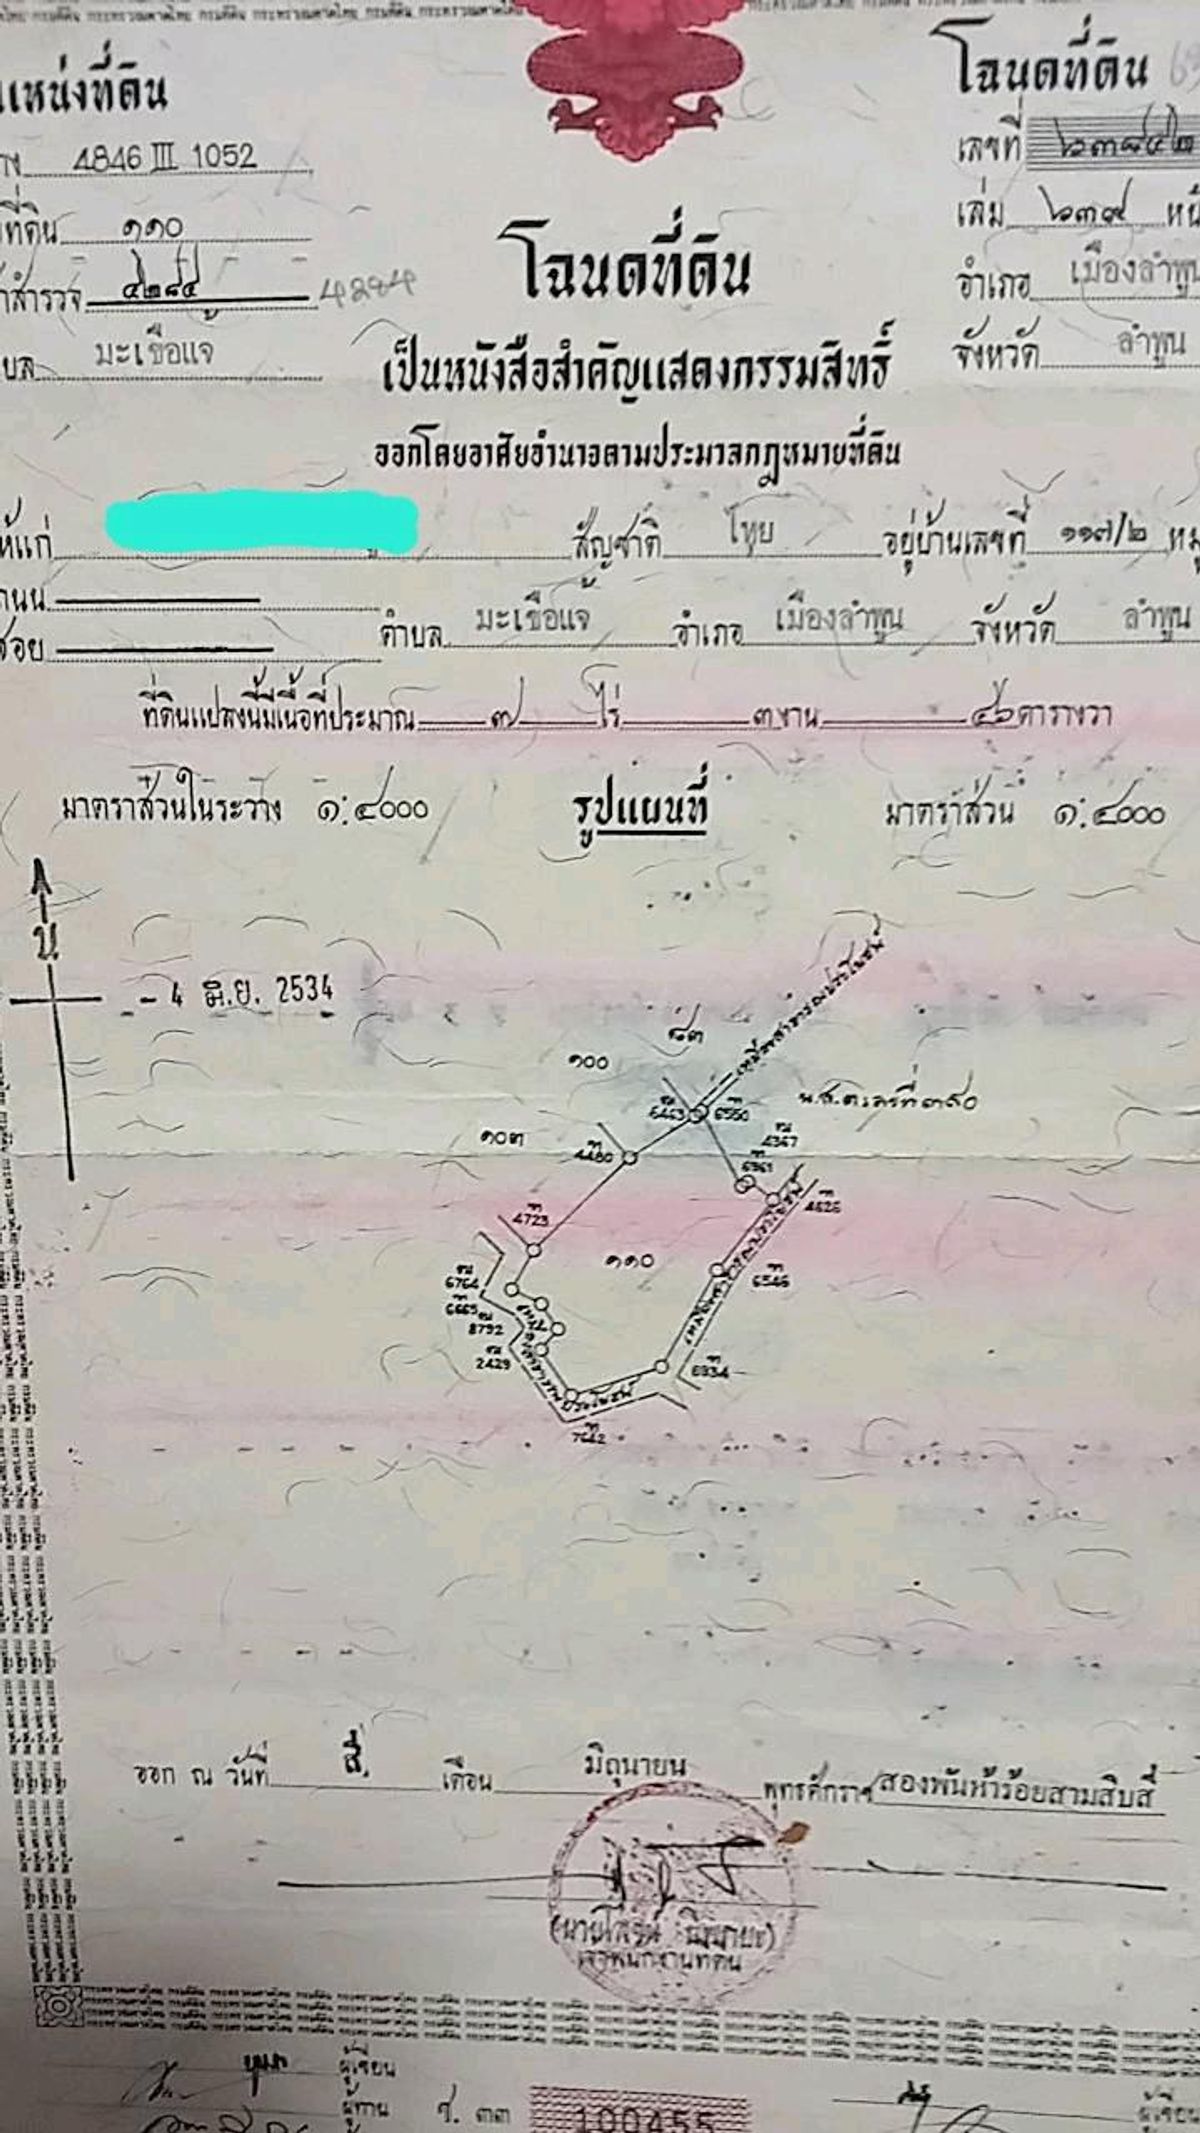 แหน่งที่ดิน
โฉนดที่ดิน
4846 III 1052
เลขที่ ๖๓๘๔๒
ที่ดิน ๑๑๐
เล่ม ๖๓๙
สำรวจ ๔๒๘๔ 4284
อำเภอ เมืองลำพูน
มะเขือแจ้
จังหวัด ลำพูน
โฉนดที่ดิน
เป็นหนังสือสำคัญแสดงกรรมสิทธิ์
ออกโดยอาศัยอำนาจตามประมวลกฎหมายที่ดิน
ให้แก่ สัญชาติ ไทย อยู่บ้านเลขที่ ๑๑๗/๒ หมู่
ถนน
ซอย ตำบล มะเขือแจ้ อำเภอ เมืองลำพูน จังหวัด ลำพูน
ที่ดินแปลงนี้มีเนื้อที่ประมาณ ๗ ไร่ ๓ งาน ๔๖ ตารางวา
มาตราส่วนในระวาง ๑:๔๐๐๐ รูปแผนที่ มาตราส่วน ๑:๔๐๐๐
น
- 4 มิ.ย. 2534
เหมืองสาธารณประโยชน์
๘๓
๑๐๐
6463 6550
น.ส.๓ เลขที่ ๓๙๐
๑๐๓
4480
4367
6961
4626
4723
๑๑๐
6546
6764
6665
8792
2429
6934
7642
ออก ณ วันที่ สี่ เดือน มิถุนายน พุทธศักราช สองพันห้าร้อยสามสิบสี่
เจ้าพนักงานที่ดิน
ผู้เขียน
ผู้ทาน ช. ๓๓ 100455
ผู้เขียน